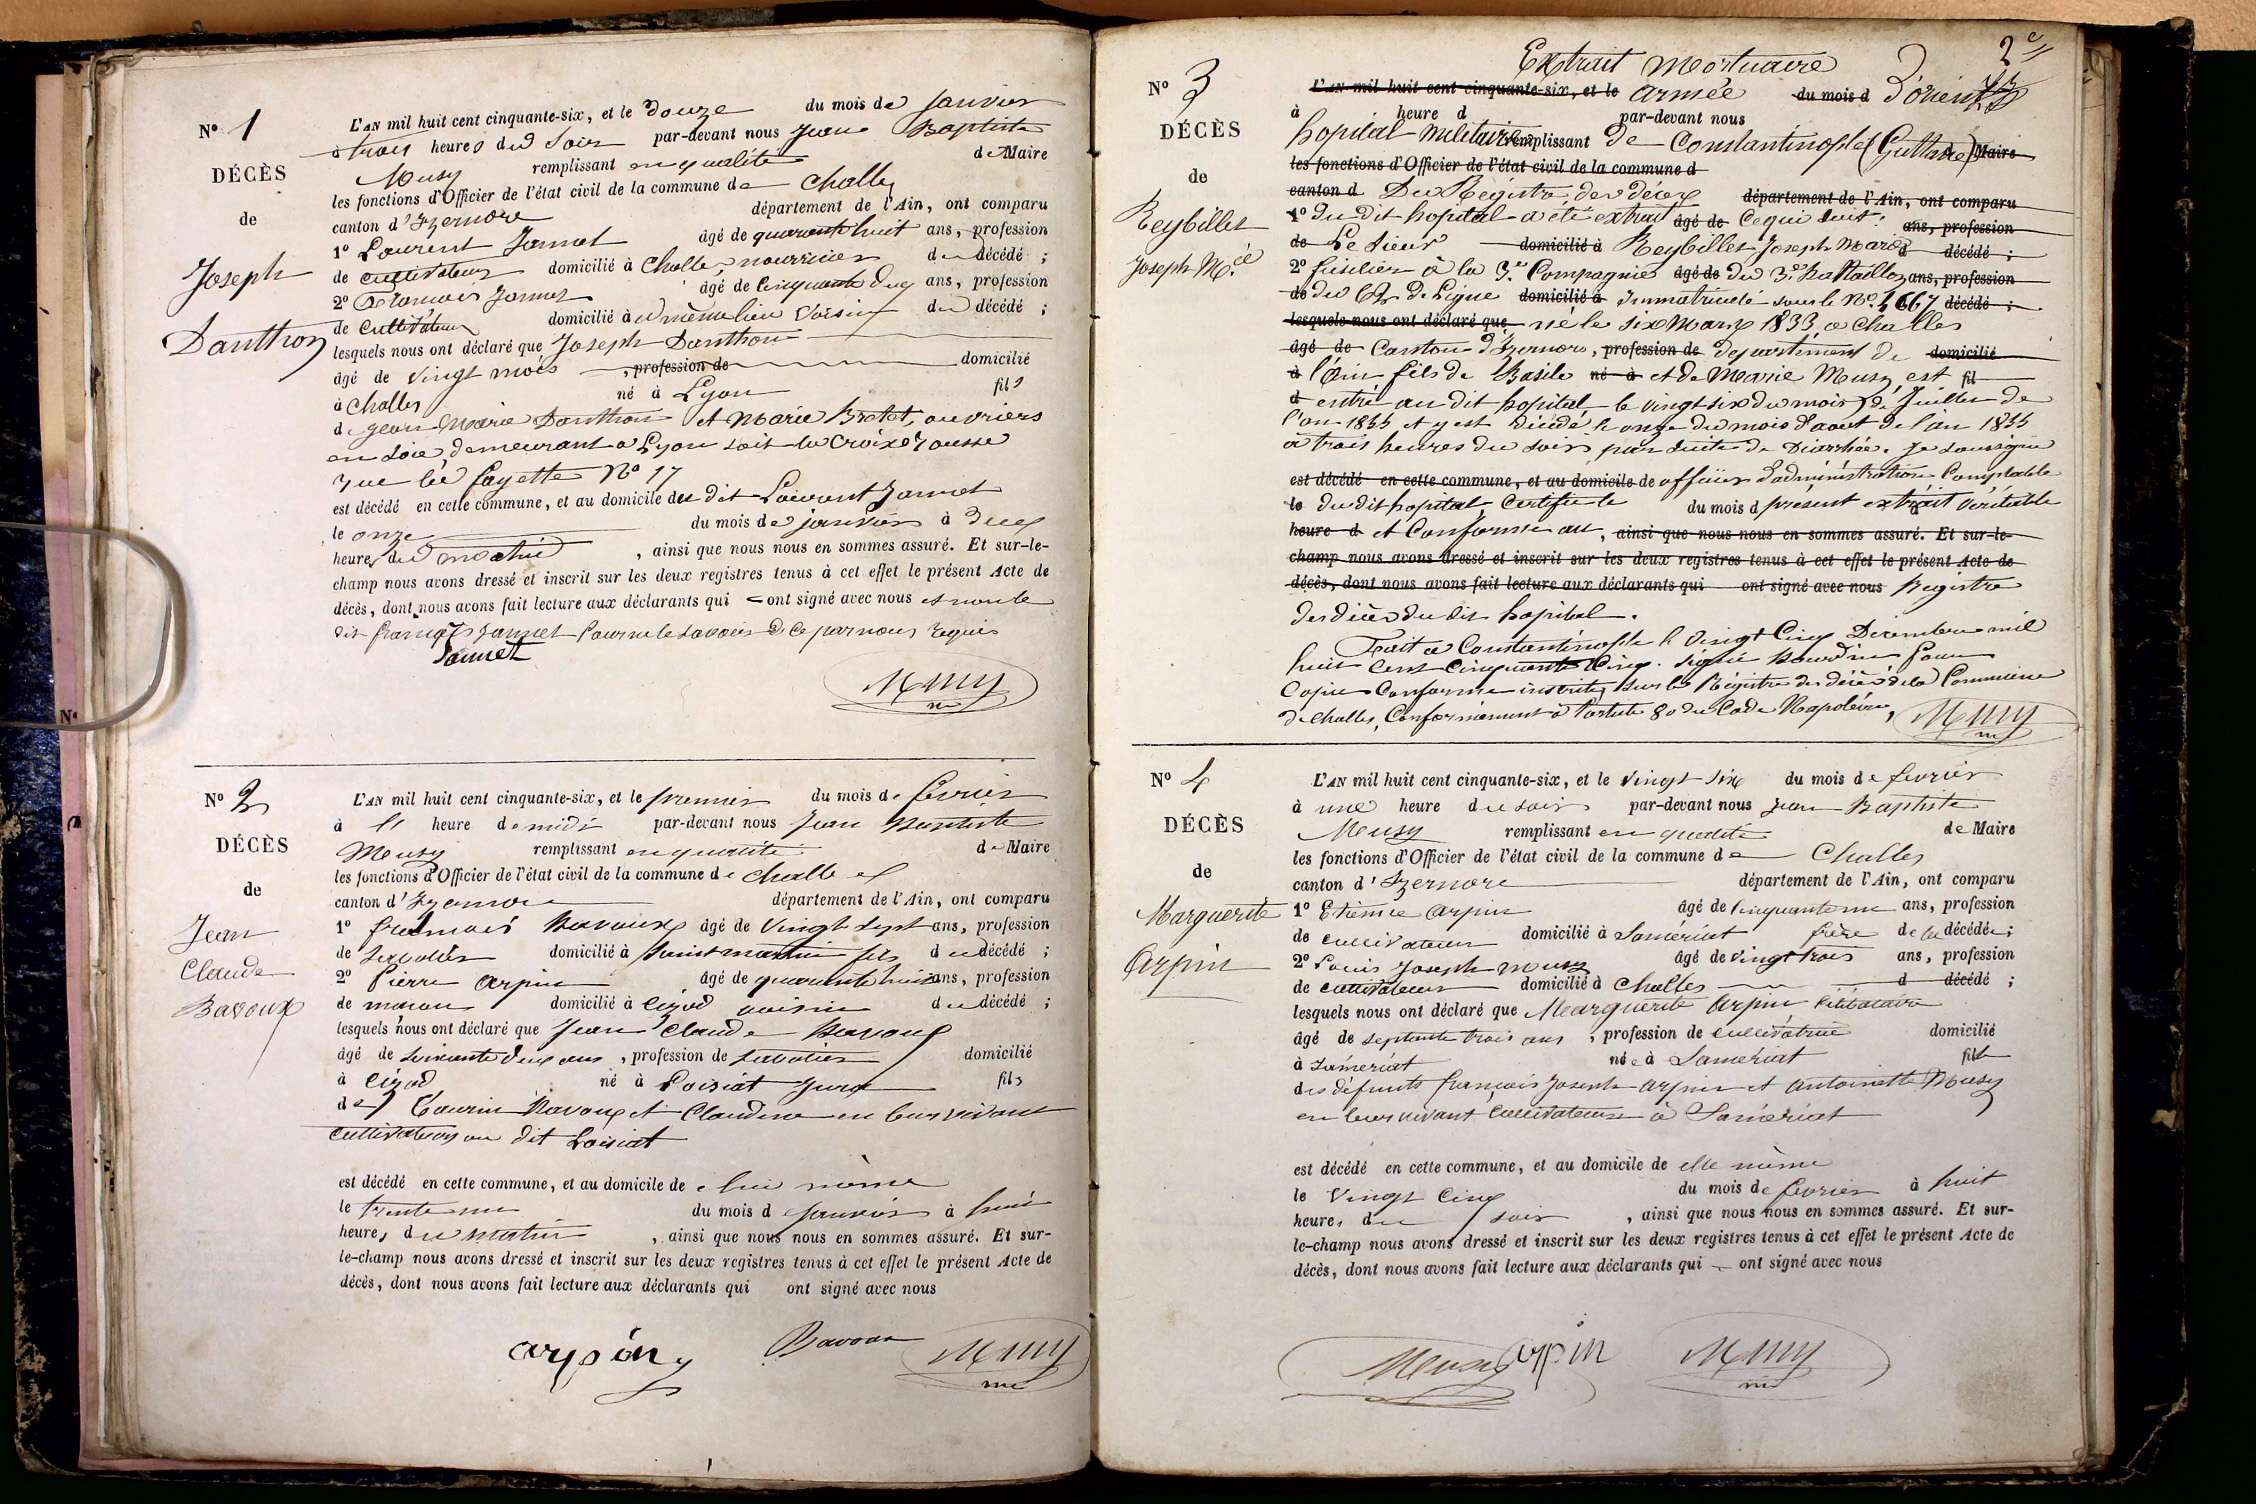 N° 1
DÉCÈS
de
Joseph
Danthon
L'AN mil huit cent cinquante-six, et le douze du mois de janvier
à trois heures du soir par-devant nous Jean Baptiste
Musy remplissant en qualité de Maire
les fonctions d'Officier de l'état civil de la commune de Challes
canton d'Izernore département de l'Ain, ont comparu
1° Laurent Jannet âgé de quarante huit ans, profession
de cultivateur domicilié à Challes, nourricier du décédé ;
2° François Jannet âgé de cinquante deux ans, profession
de cultivateur domicilié à même lieu voisin du décédé ;
lesquels nous ont déclaré que Joseph Danthon
âgé de vingt mois, profession de domicilié
à Challes né à Lyon fils
de Jean Marie Danthon et Marie Bretet, ouvriers
en soie, demeurant à Lyon soit la Croix Rousse
rue la fayette N° 17
est décédé en cette commune, et au domicile du dit Laurent Jannet
le onze du mois de janvier à deux
heures du matin, ainsi que nous nous en sommes assuré. Et sur-le-
champ nous avons dressé et inscrit sur les deux registres tenus à cet effet le présent Acte de
décès, dont nous avons fait lecture aux déclarants qui ont signé avec nous et non le
dit françois Jannet pour ne le savoir de ce par nous requis
Jannet
Musy
N° 2
DÉCÈS
de
Jean
Claude
Bavoux
L'AN mil huit cent cinquante-six, et le premier du mois de fevrier
à l' heure de midi par-devant nous Jean Baptiste
Musy remplissant en qualité de Maire
les fonctions d'Officier de l'état civil de la commune de Challes
canton d'Izernore département de l'Ain, ont comparu
1° françois Bavoux âgé de vingt sept ans, profession
de sabotier domicilié à saint martin fils du décédé ;
2° Pierre Arpin âgé de quarante huit ans, profession
de maçon domicilié à Cizod voisin du décédé ;
lesquels nous ont déclaré que Jean Claude Bavoux
âgé de soixante deux ans, profession de sabotier domicilié
à Cizod né à Loisiat Jura fils
de Taurin Bavoux et Claudine en leur vivant
cultivateurs au dit Loisiat
est décédé en cette commune, et au domicile de lui même
le trente un du mois de janvier à huit
heures du matin, ainsi que nous nous en sommes assuré. Et sur-
le-champ nous avons dressé et inscrit sur les deux registres tenus à cet effet le présent Acte de
décès, dont nous avons fait lecture aux déclarants qui ont signé avec nous
arpin Bavoux Musy
2e
N° 3
DÉCÈS
de
Reybillet
Joseph M.ie
Extrait Mortuaire
L'AN mil huit cent cinquante-six, et le armée du mois d d'orient
à heure d par-devant nous
hopital militaire remplissant de Constantinople Maire
les fonctions d'Officier de l'état civil de la commune d
canton d Du Registre des décès département de l'Ain, ont comparu
1° du dit hopital a été extrait âgé de ce qui suit. ans, profession
de Le sieur domicilié à Reybillet Joseph Marie d décédé ;
2° fusilier à la 3.e Compagnie âgé de du 3.e Bataillon ans, profession
de du de Ligne domicilié à immatriculé sous le N° 4667 décédé ;
lesquels nous ont déclaré que né le six Mars 1833, à Challes
âgé de Canton d'Izernore, profession de departement de domicilié
à l'Ain fils de Basile né à et de Marie Musy, est fil
d entré au dit hopital le vingt six du mois de Juillet de
l'an 1855 et y est décédé le onze du mois d'aout de l'an 1855
à trois heures du soir par suite de Diarrhée. Je soussigné
est décédé en cette commune, et au domicile de officier d'administration Comptable
le du dit hopital, Certifie le du mois d present extrait véritable
heure d et Conforme au, ainsi que nous nous en sommes assuré. Et sur-le-
champ nous avons dressé et inscrit sur les deux registres tenus à cet effet le présent Acte de
décès, dont nous avons fait lecture aux déclarants qui ont signé avec nous Registre
des décès du dit hopital.
Fait à Constantinople le vingt Cinq Décembre mil
huit Cent Cinquante Cinq. signé Pour
Copie Conforme inscrite sur le Régistre des décès de la Commune
de Challes, Conformément à l'article 80 du Code Napoléon, Musy
N° 4
DÉCÈS
de
Marguerite
Arpin
L'AN mil huit cent cinquante-six, et le vingt six du mois de fevrier
à une heure du soir par-devant nous Jean Baptiste
Musy remplissant en qualité de Maire
les fonctions d'Officier de l'état civil de la commune de Challes
canton d'Izernore département de l'Ain, ont comparu
1° Etienne Arpin âgé de cinquante un ans, profession
de cultivateur domicilié à Samériat frère de la décédée ;
2° Louis Joseph Musy âgé de vingt trois ans, profession
de cultivateur domicilié à Challes d décédé ;
lesquels nous ont déclaré que Marguerite Arpin célibataire
âgé de septante trois ans, profession de cultivatrice domicilié
à Samériat née à Samériat fille
des défunts françois Joseph Arpin et Antoinette Musy
en leur vivant cultivateurs à Samériat
est décédé en cette commune, et au domicile de elle même
le vingt Cinq du mois de fevrier à huit
heures du soir, ainsi que nous nous en sommes assuré. Et sur-
le-champ nous avons dressé et inscrit sur les deux registres tenus à cet effet le présent Acte de
décès, dont nous avons fait lecture aux déclarants qui ont signé avec nous
Musy arpin Musy